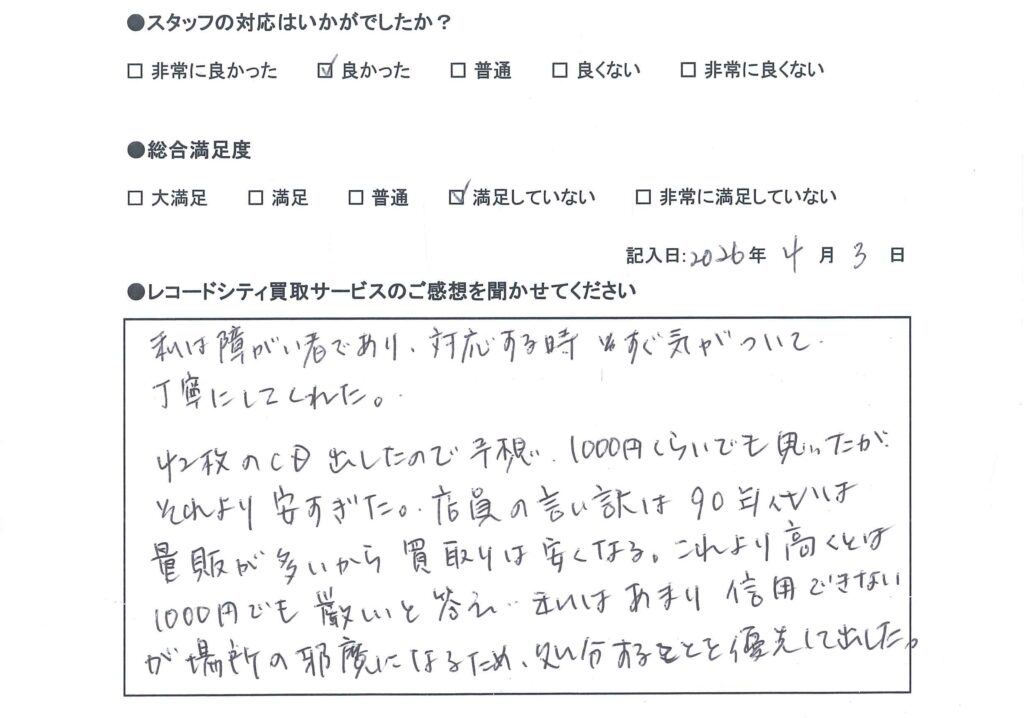 ●スタッフの対応はいかがでしたか？
□ 非常に良かった ☑ 良かった □ 普通 □ 良くない □ 非常に良くない
●総合満足度
□ 大満足 □ 満足 □ 普通 ☑ 満足していない □ 非常に満足していない
記入日:2026年 4 月 3 日
●レコードシティ買取サービスのご感想を聞かせてください
私は障がい者であり、対応する時 すぐ気がついて
丁寧にしてくれた。
42枚のCD 出したので予想、1000円くらいでも思ったが
それより安すぎた。店員の言い訳は90年代は
量販が多いから買取りは安くなる。これより高くとは
1000円でも厳しいと答え 私はあまり信用できない
が場所の邪魔になるため、処分することを優先して出した。